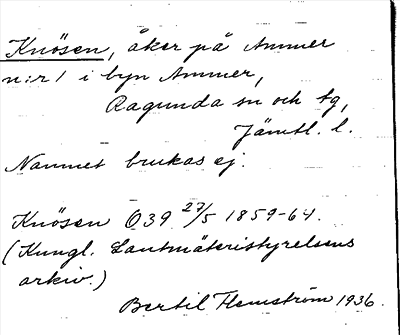 Knösen, åker på Ammer
n:r 1 i byn Ammer,
Ragunda sn och tg,
Jämtl. l.
Namnet brukas ej.
Knösen Ö39 27/5 1859-64.
(Kungl. Lantmäteristyrelsens
arkiv.)
Bertil Flemström 1936.